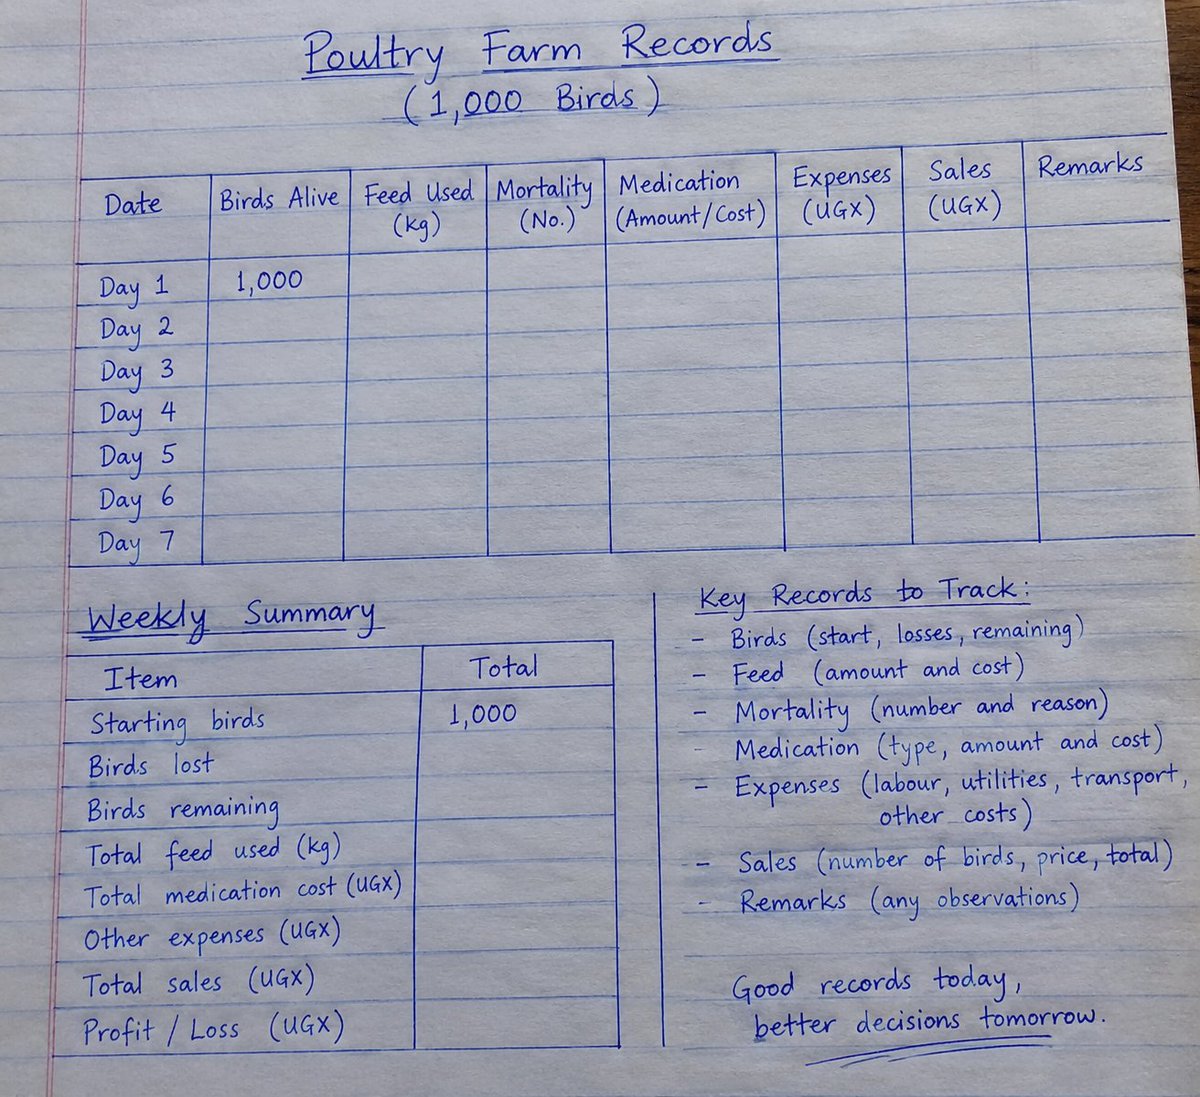 Poultry Farm Records
(1,000 Birds)
Date Birds Alive Feed Used (kg) Mortality (No.) Medication (Amount/Cost) Expenses (UGX) Sales (UGX) Remarks
Day 1 1,000
Day 2
Day 3
Day 4
Day 5
Day 6
Day 7
Weekly Summary
Item Total
Starting birds 1,000
Birds lost
Birds remaining
Total feed used (kg)
Total medication cost (UGX)
Other expenses (UGX)
Total sales (UGX)
Profit / Loss (UGX)
Key Records to Track:
- Birds (start, losses, remaining)
- Feed (amount and cost)
- Mortality (number and reason)
- Medication (type, amount and cost)
- Expenses (labour, utilities, transport,
other costs)
- Sales (number of birds, price, total)
- Remarks (any observations)
Good records today,
better decisions tomorrow.